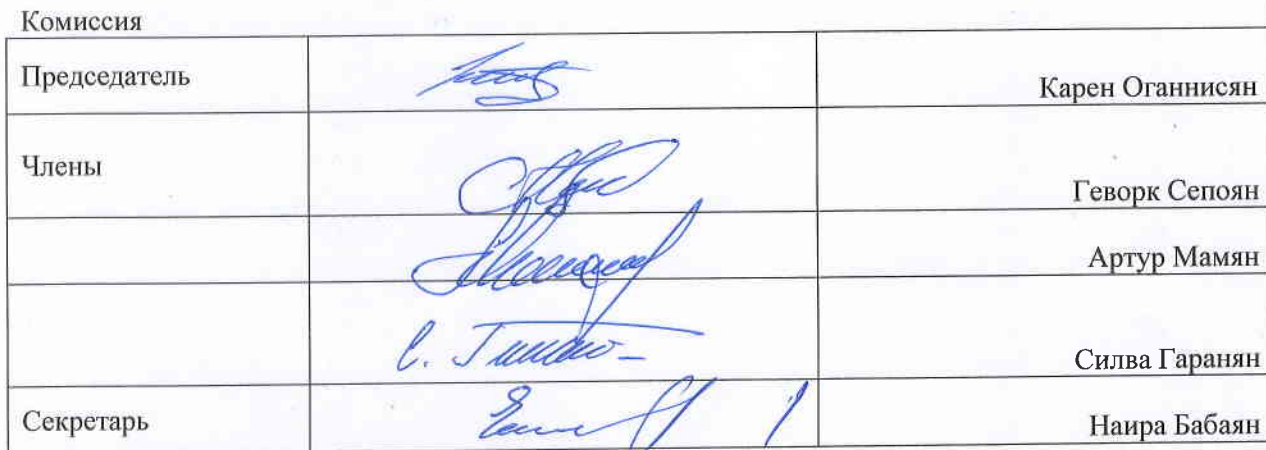 Комиссия
Председатель Карен Оганнисян
Члены Геворк Сепоян
Артур Мамян
Силва Гаранян
Секретарь Наира Бабаян